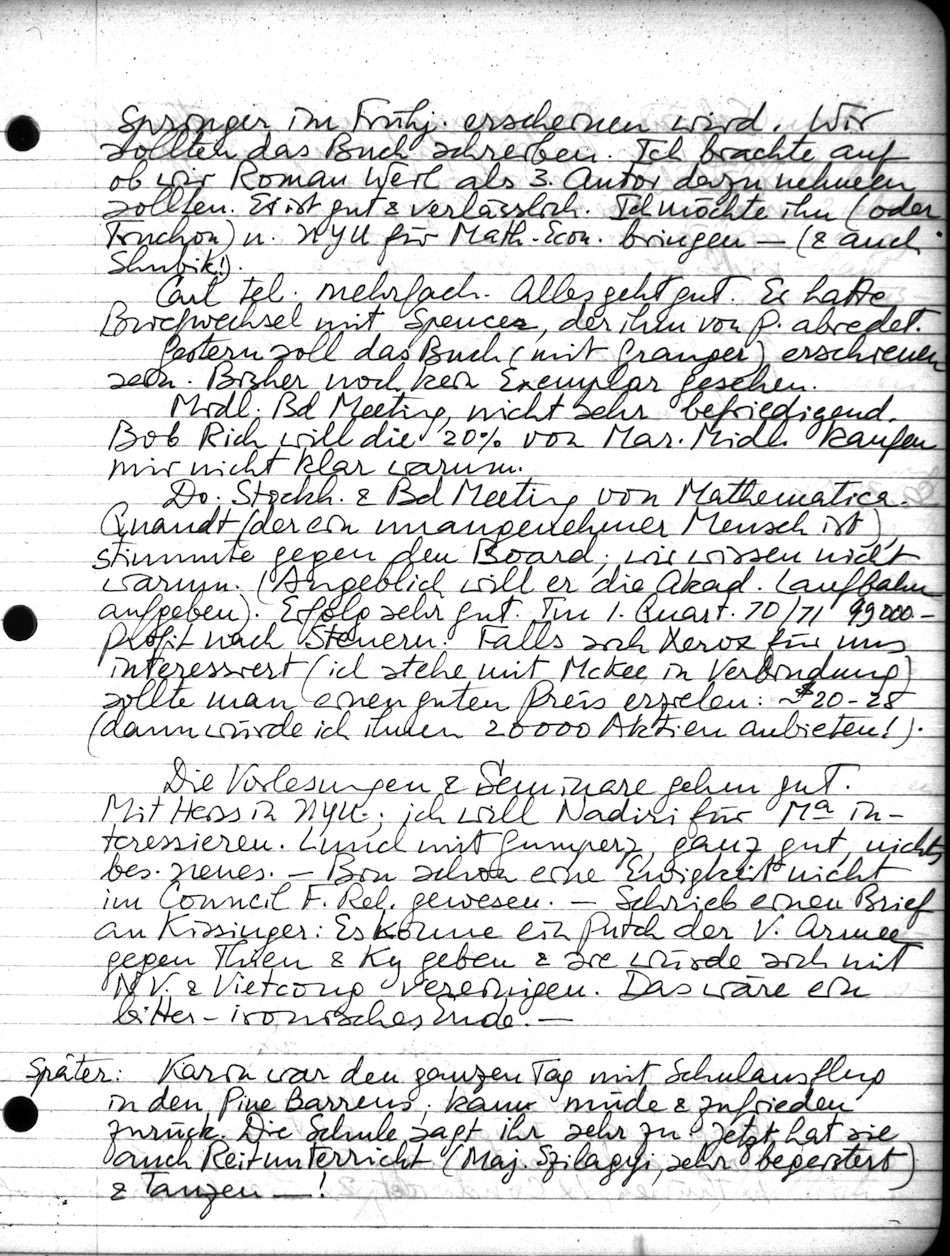 Springer im Frühj. erscheinen wird. Wir
sollten das Buch schreiben. Ich brachte auf
ob wir Roman Weil als 3. Autor dazu nehmen
sollten. Er ist gut & verlässlich. Ich möchte ihn (oder
Truchon) n. NYU für Math-Econ. bringen – (& auch
Shubik!).
Carl tel. mehrfach. Alles geht gut. Er hatte
Briefwechsel mit Spencer, der ihm von P. abredet.
Gestern soll das Buch (mit Granger) erschienen
sein. Bisher noch kein Exemplar gesehen.
Midl. Bd Meeting, nicht sehr befriedigend.
Bob Rich will die 20% von Mar. Midl. kaufen
mir nicht klar warum.
Do. Stockh. & Bd Meeting von Mathematica.
Quandt (der ein unangenehmer Mensch ist)
stimmte gegen den Board; wir wissen nicht
warum. (Angeblich will er die Akad. Laufbahn
aufgeben). Erfolg sehr gut. Im 1. Quart. 70/71 99000–
Profit nach Steuern. Falls sich Xerox für uns
interessiert (ich stehe mit McKee in Verbindung)
sollte man einen guten Preis erzielen: ~$20–28
(dann würde ich ihnen 20000 Aktien anbieten!).
Die Vorlesungen & Seminare gehen gut.
Mit Heiss in NYU.; ich will Nadiri für Ma in-
teressieren. Lunch mit Gumperz, ganz gut, nichts
bes. neues. – Bin schon eine Ewigkeit nicht
im Council F. Rel. gewesen. – Schrieb einen Brief
an Kissinger: Es könne ein Putch der V. Armee
gegen Thieu & Ky geben & sie würde sich mit
N.V. & Vietcong vereinigen. Das wäre ein
bitter-ironisches Ende. –
Später: Karin war den ganzen Tag mit Schulausflug
in den Pine Barrens; kam müde & zufrieden
zurück. Die Schule sagt ihr sehr zu. Jetzt hat sie
auch Reitunterricht (Maj. Szilagyi, sehr begeistert)
& Tanzen – !